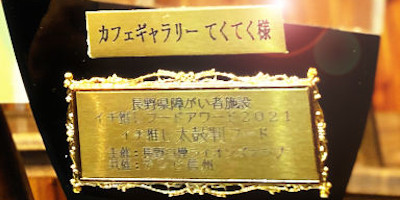 カフェギャラリー てくてく様
長野県障がい者施設
イチ推しフードアワード2021
イチ推し太鼓判フード
主催：長野県
共催：テレビ信州